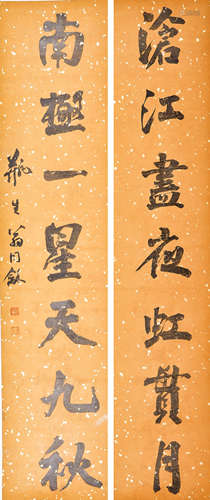 滄江盡夜虹貫月
南極一星天九秋
瓶生翁同龢